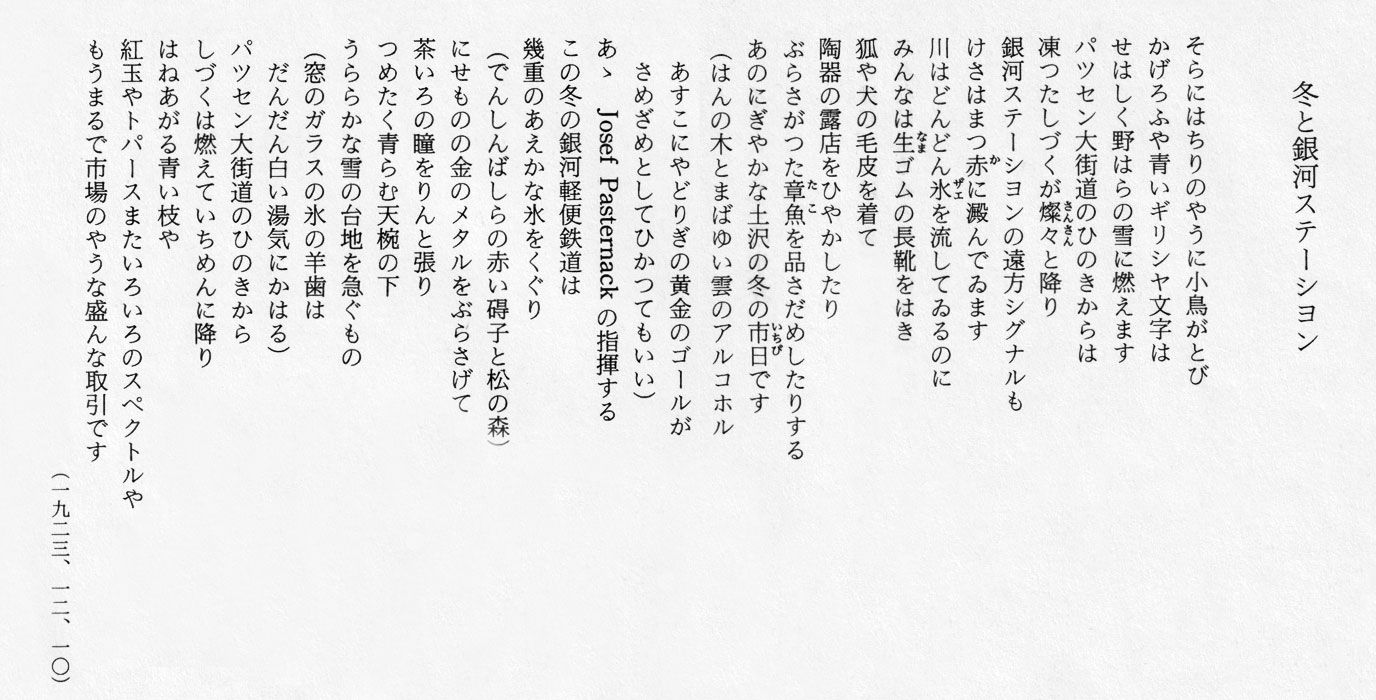 冬と銀河ステーション
そらにはちりのやうに小鳥がとび
かげろふや青いギリシヤ文字は
せはしく野はらの雪に燃えます
パツセン大街道のひのきからは
凍つたしづくが燦々と降り
銀河ステーションの遠方シグナルも
けさはまつ赤に澱んでゐます
川はどんどん氷を流してゐるのに
みんなは生ゴムの長靴をはき
狐や犬の毛皮を着て
陶器の露店をひやかしたり
ぶらさがつた章魚を品さだめしたりする
あのにぎやかな土沢の冬の市日です
(はんの木とまばゆい雲のアルコホル
あすこにやどりぎの黄金のゴールが
さめざめとしてひかつてもいい)
あゝ Josef Pasternack の指揮する
この冬の銀河軽便鉄道は
幾重のあえかな氷をくぐり
(でんしんばしらの赤い碍子と松の森)
にせものの金のメタルをぶらさげて
茶いろの瞳をりんと張り
つめたく青らむ天椀の下
うららかな雪の台地を急ぐもの
(窓のガラスの氷の羊歯は
だんだん白い湯気にかはる)
パツセン大街道のひのきから
しづくは燃えていちめんに降り
はねあがる青い枝や
紅玉やトパースまたいろいろのスペクトルや
もうまるで市場のやうな盛んな取引です
(一九二三、一二、一〇)